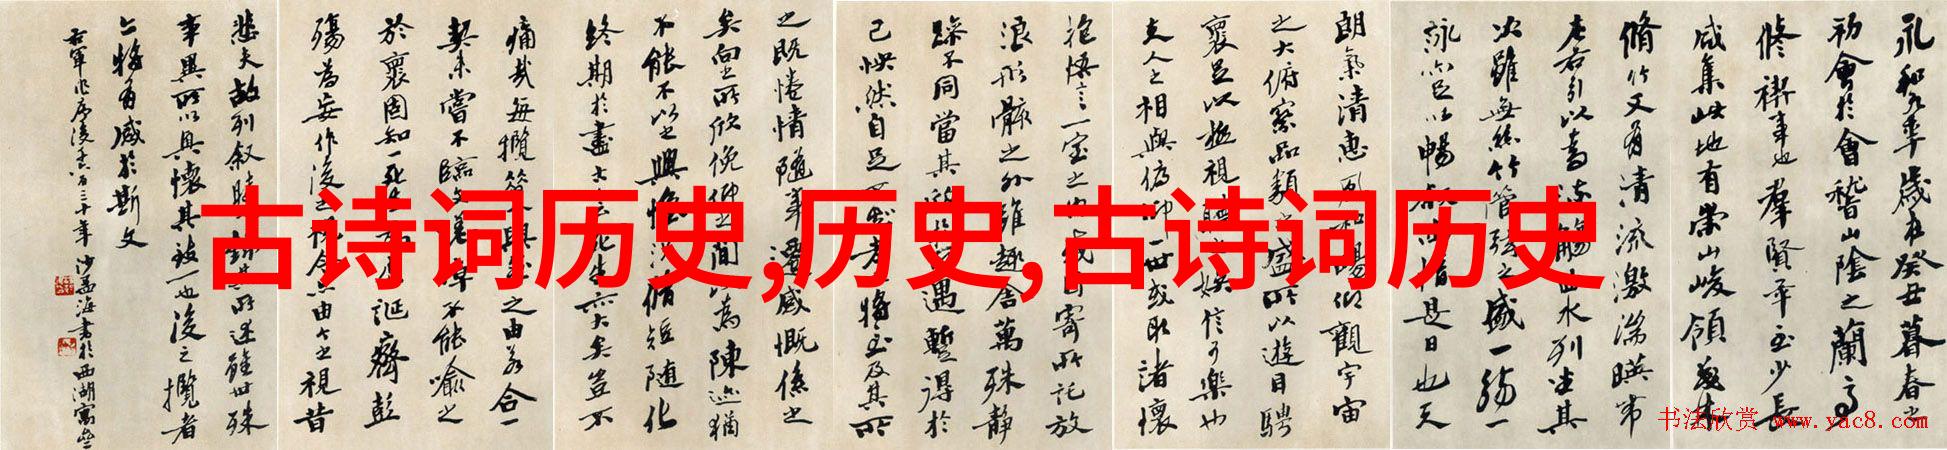 永和九年歲在癸丑暮春之
初會於會稽山陰之蘭亭
修禊事也羣賢畢至少長
咸集此地有崇山峻領茂林
脩竹又有清流激湍暎帶
左右引以為流觴曲水列坐其
次雖無絲竹管弦之盛一觴一
詠亦足以暢敘幽情是日也天
朗氣清惠風和暢仰觀宇宙
之大俯察品類之盛所以遊目騁
襄足以極視聽之娛信可樂也
夫人之相與俯仰一世或取諸懷
抱悟言一室之內或因寄所託放
浪形骸之外雖趣舍萬殊靜
躁不同當其欣於所遇蹔得於
己怏然自足不知老之將至及其所
之既惓情隨事遷感慨係之
矣向之所欣俛仰之間以為陳迹猶
不能不以之興懷況脩短隨化
終期於盡古人云死生亦大矣豈不
痛哉每攬昔人興感之由若合一
契未嘗不臨文嗟悼不能喻之
於襄固知一死生為虛誕齊彭
殤為妄作後之視今亦由今之視昔
悲夫故列敘時人錄其所述雖世殊
事異所以興懷其致一也後之攬者
亦將有感於斯文
右軍作序後千六百三十年沙孟海書於西湖寓
古诗词历史,历史,古诗词历史
书法欣赏 www.yac8.com